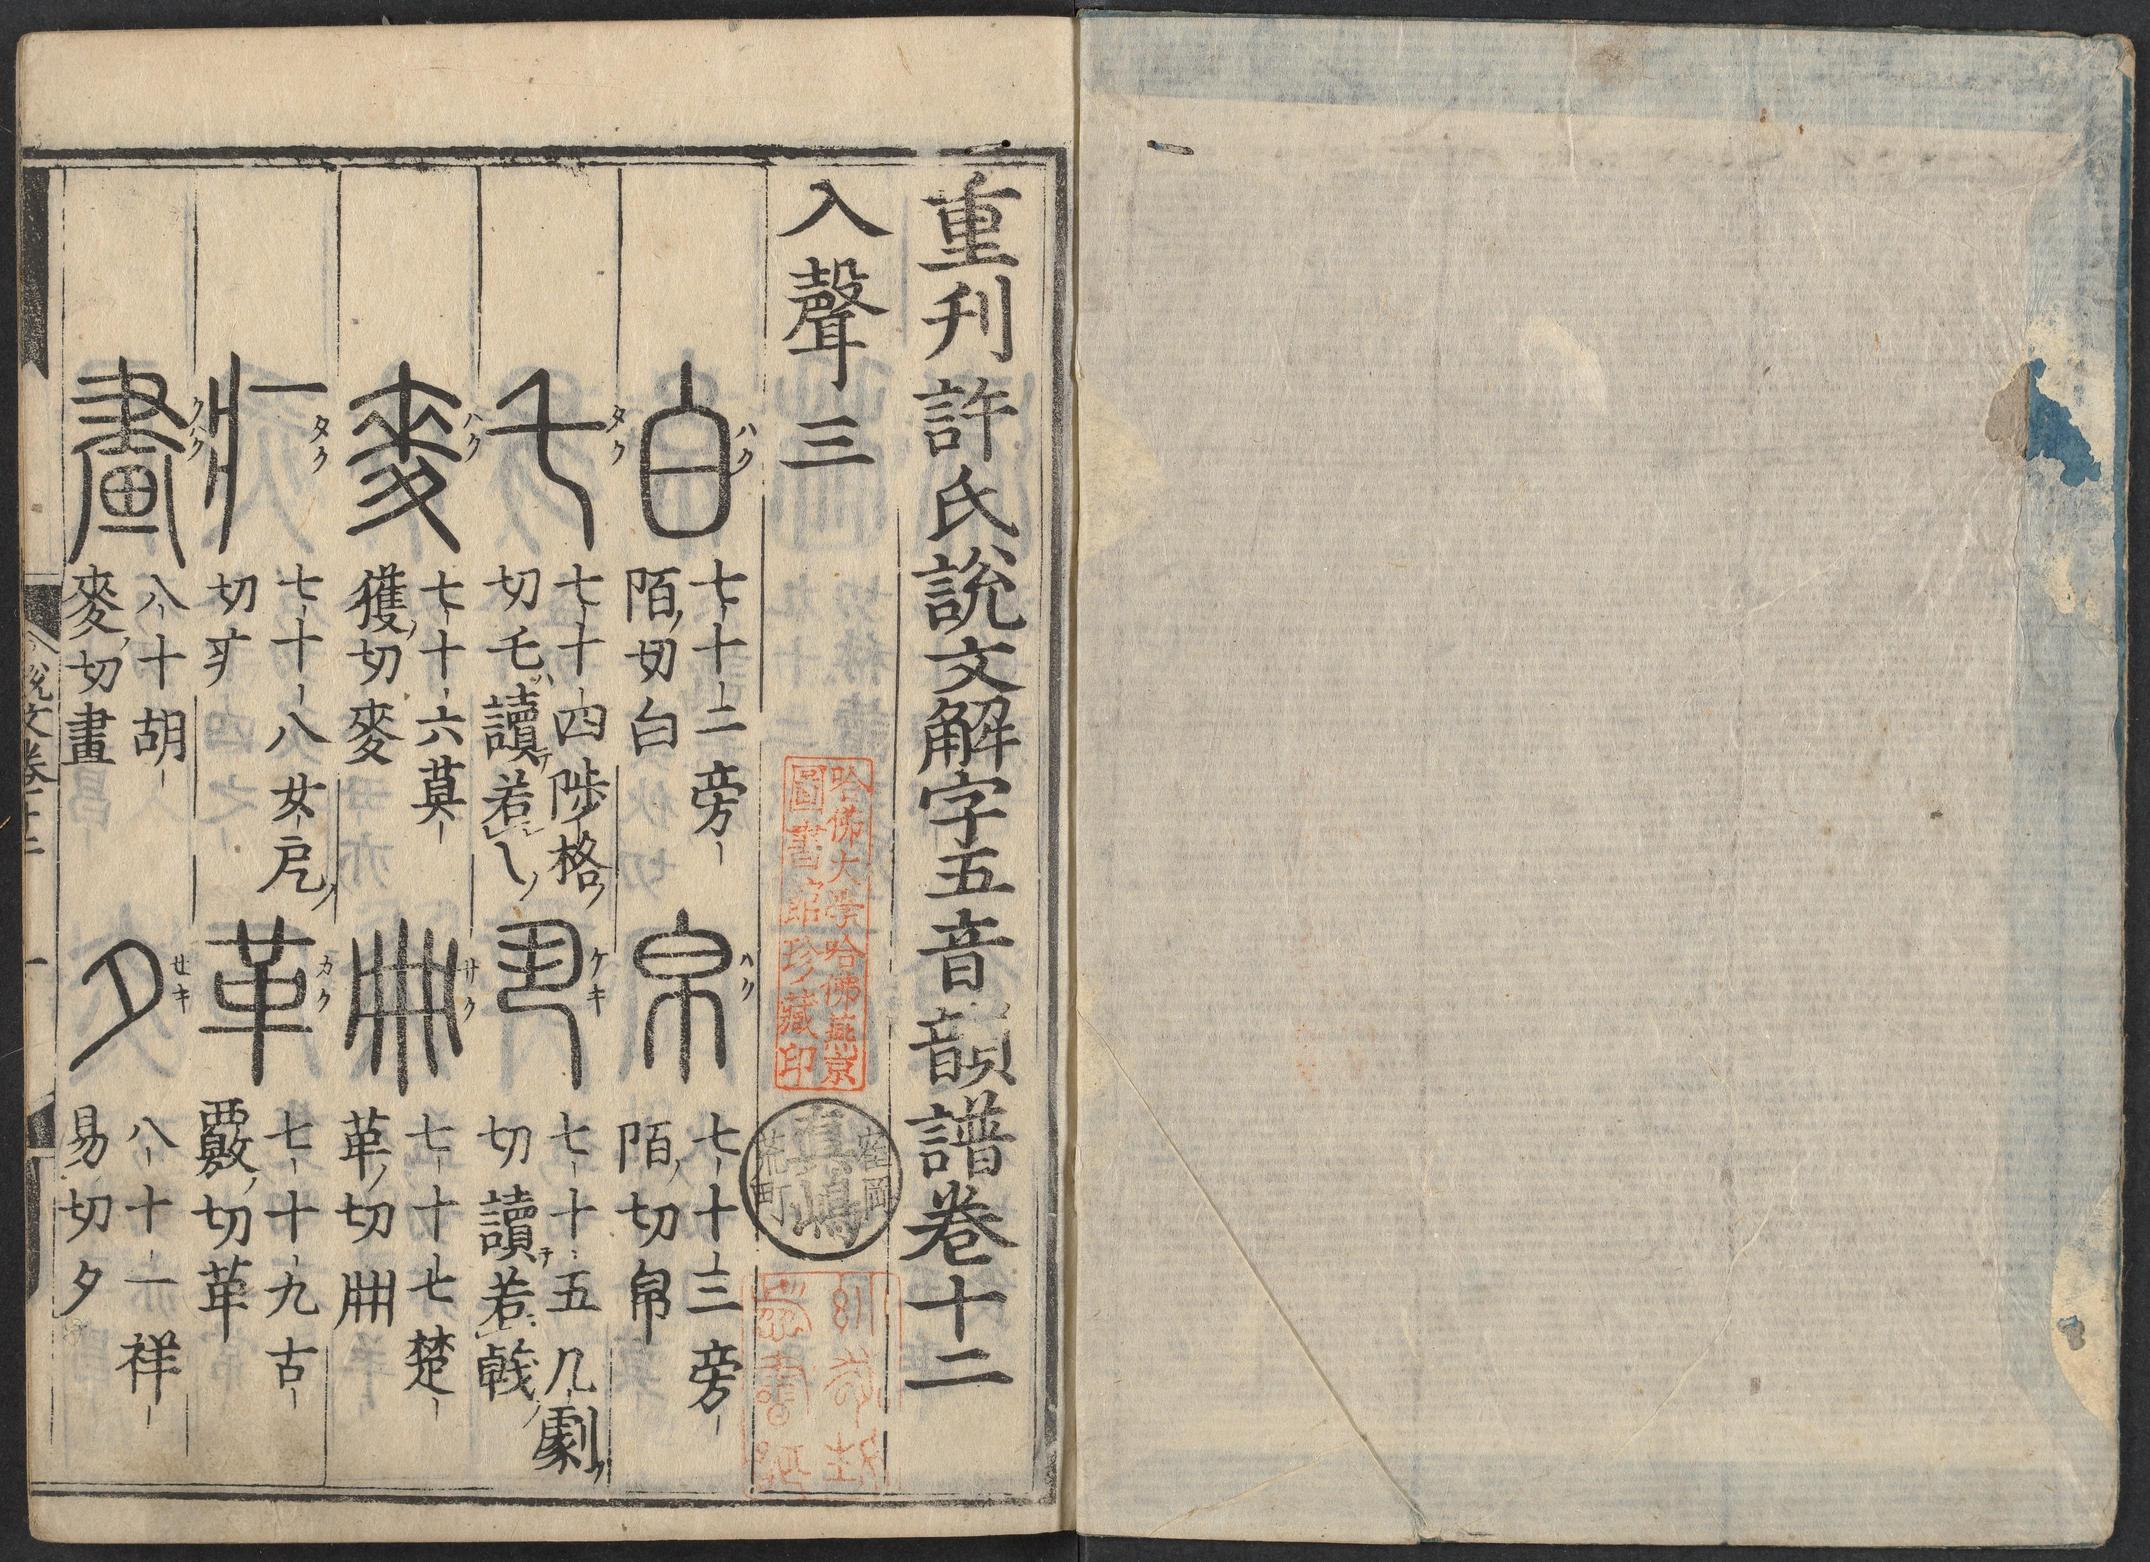 重刋許氏說文解字五音韻譜卷十二
入聲三
白 ハク 七十二旁陌切白
帛 ハク 七十三旁陌切帛
乇 タク 七十四陟格切乇讀若
丮 ケキ 七十五几劇切讀若㦸
麥 ハク 七十六莫獲切麥
冊 サク 七十七楚革切冊
疒 タク 七十八女戹切疒
革 カク 七十九古覈切革
畫 クハク 八十胡麥切畫
夕 セキ 八十一祥易切夕
說文卷十二
一
哈佛大學哈佛燕京
圖書館珍藏印
眞嶋